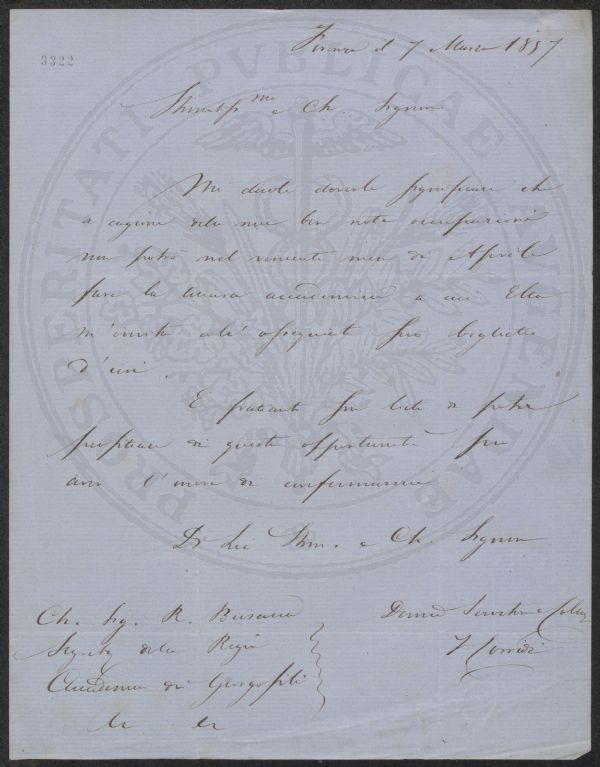 3322
PROSPERITATI PUBLICAE AUGENDAE
Firenze il 7 Marzo 1857
e Ch. Signore
Mi duole doverle significare che
a cagione delle mie ben note occupazioni
non potrò nel venturo mese di Aprile
fare la lettura accademica a cui Ella
m'invita coll' ossequiato suo biglietto
d'ieri.
E frattanto son lieto di poter
di questa opportunità per
aver l'onore di confermarmi
Di Lei Illm. e Ch. Signore
Ch. Sig. R. Busacca
della Regia
Accademia dei Georgofili
Devmo Servitore e Collega